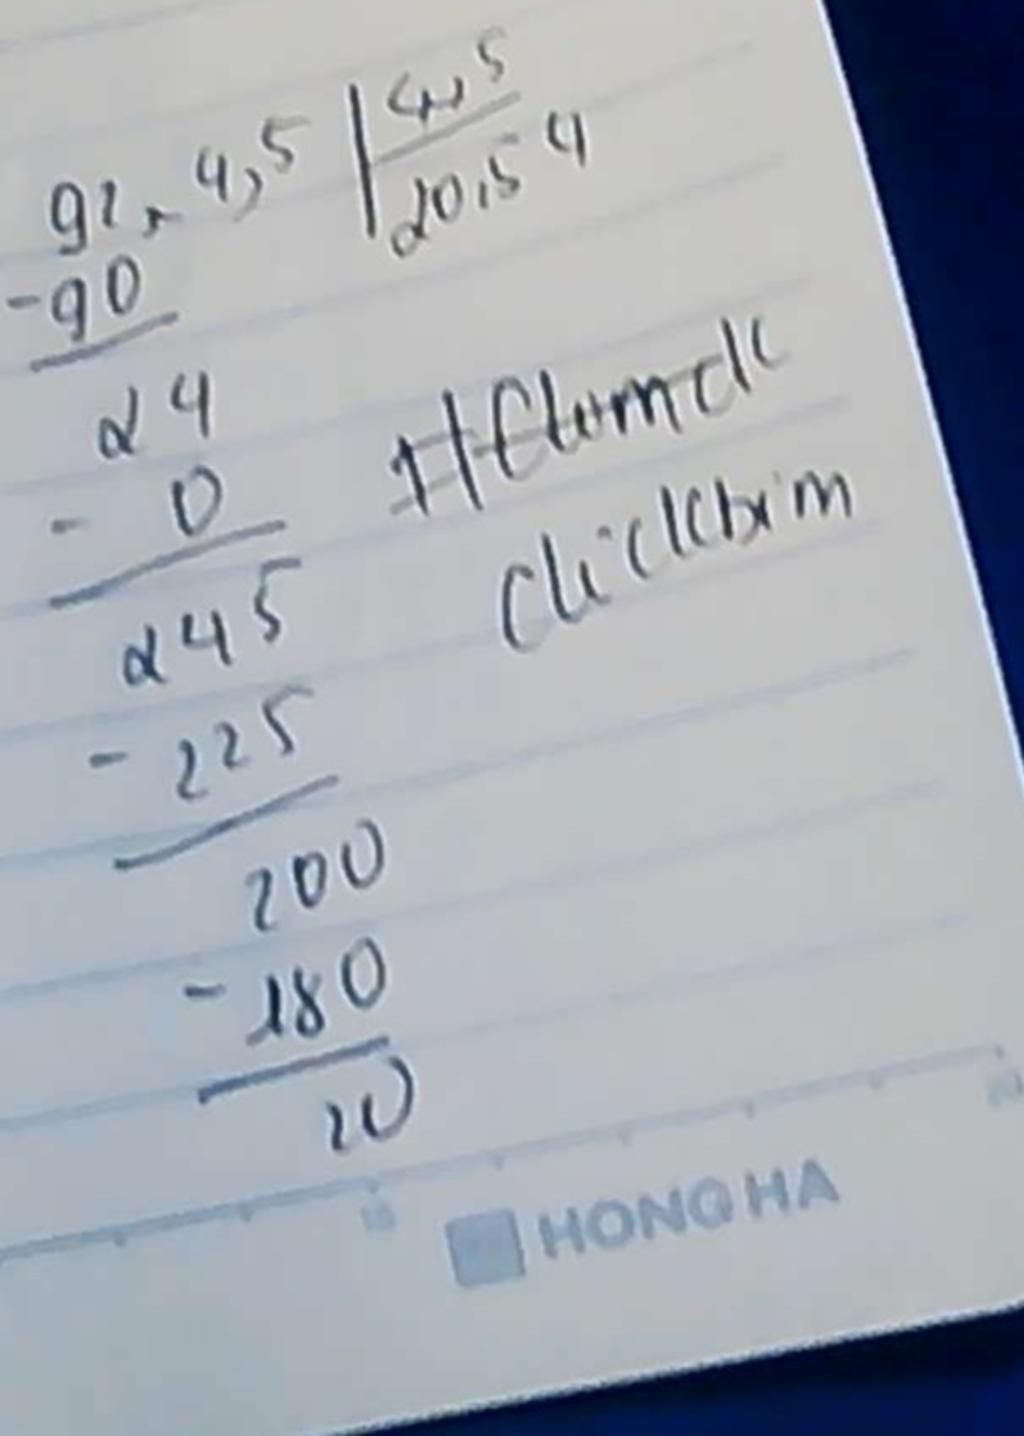 92, 4,5 | 4,5
20,54
-90
24
- 0
245
- 225
200
- 180
20
HONG HA